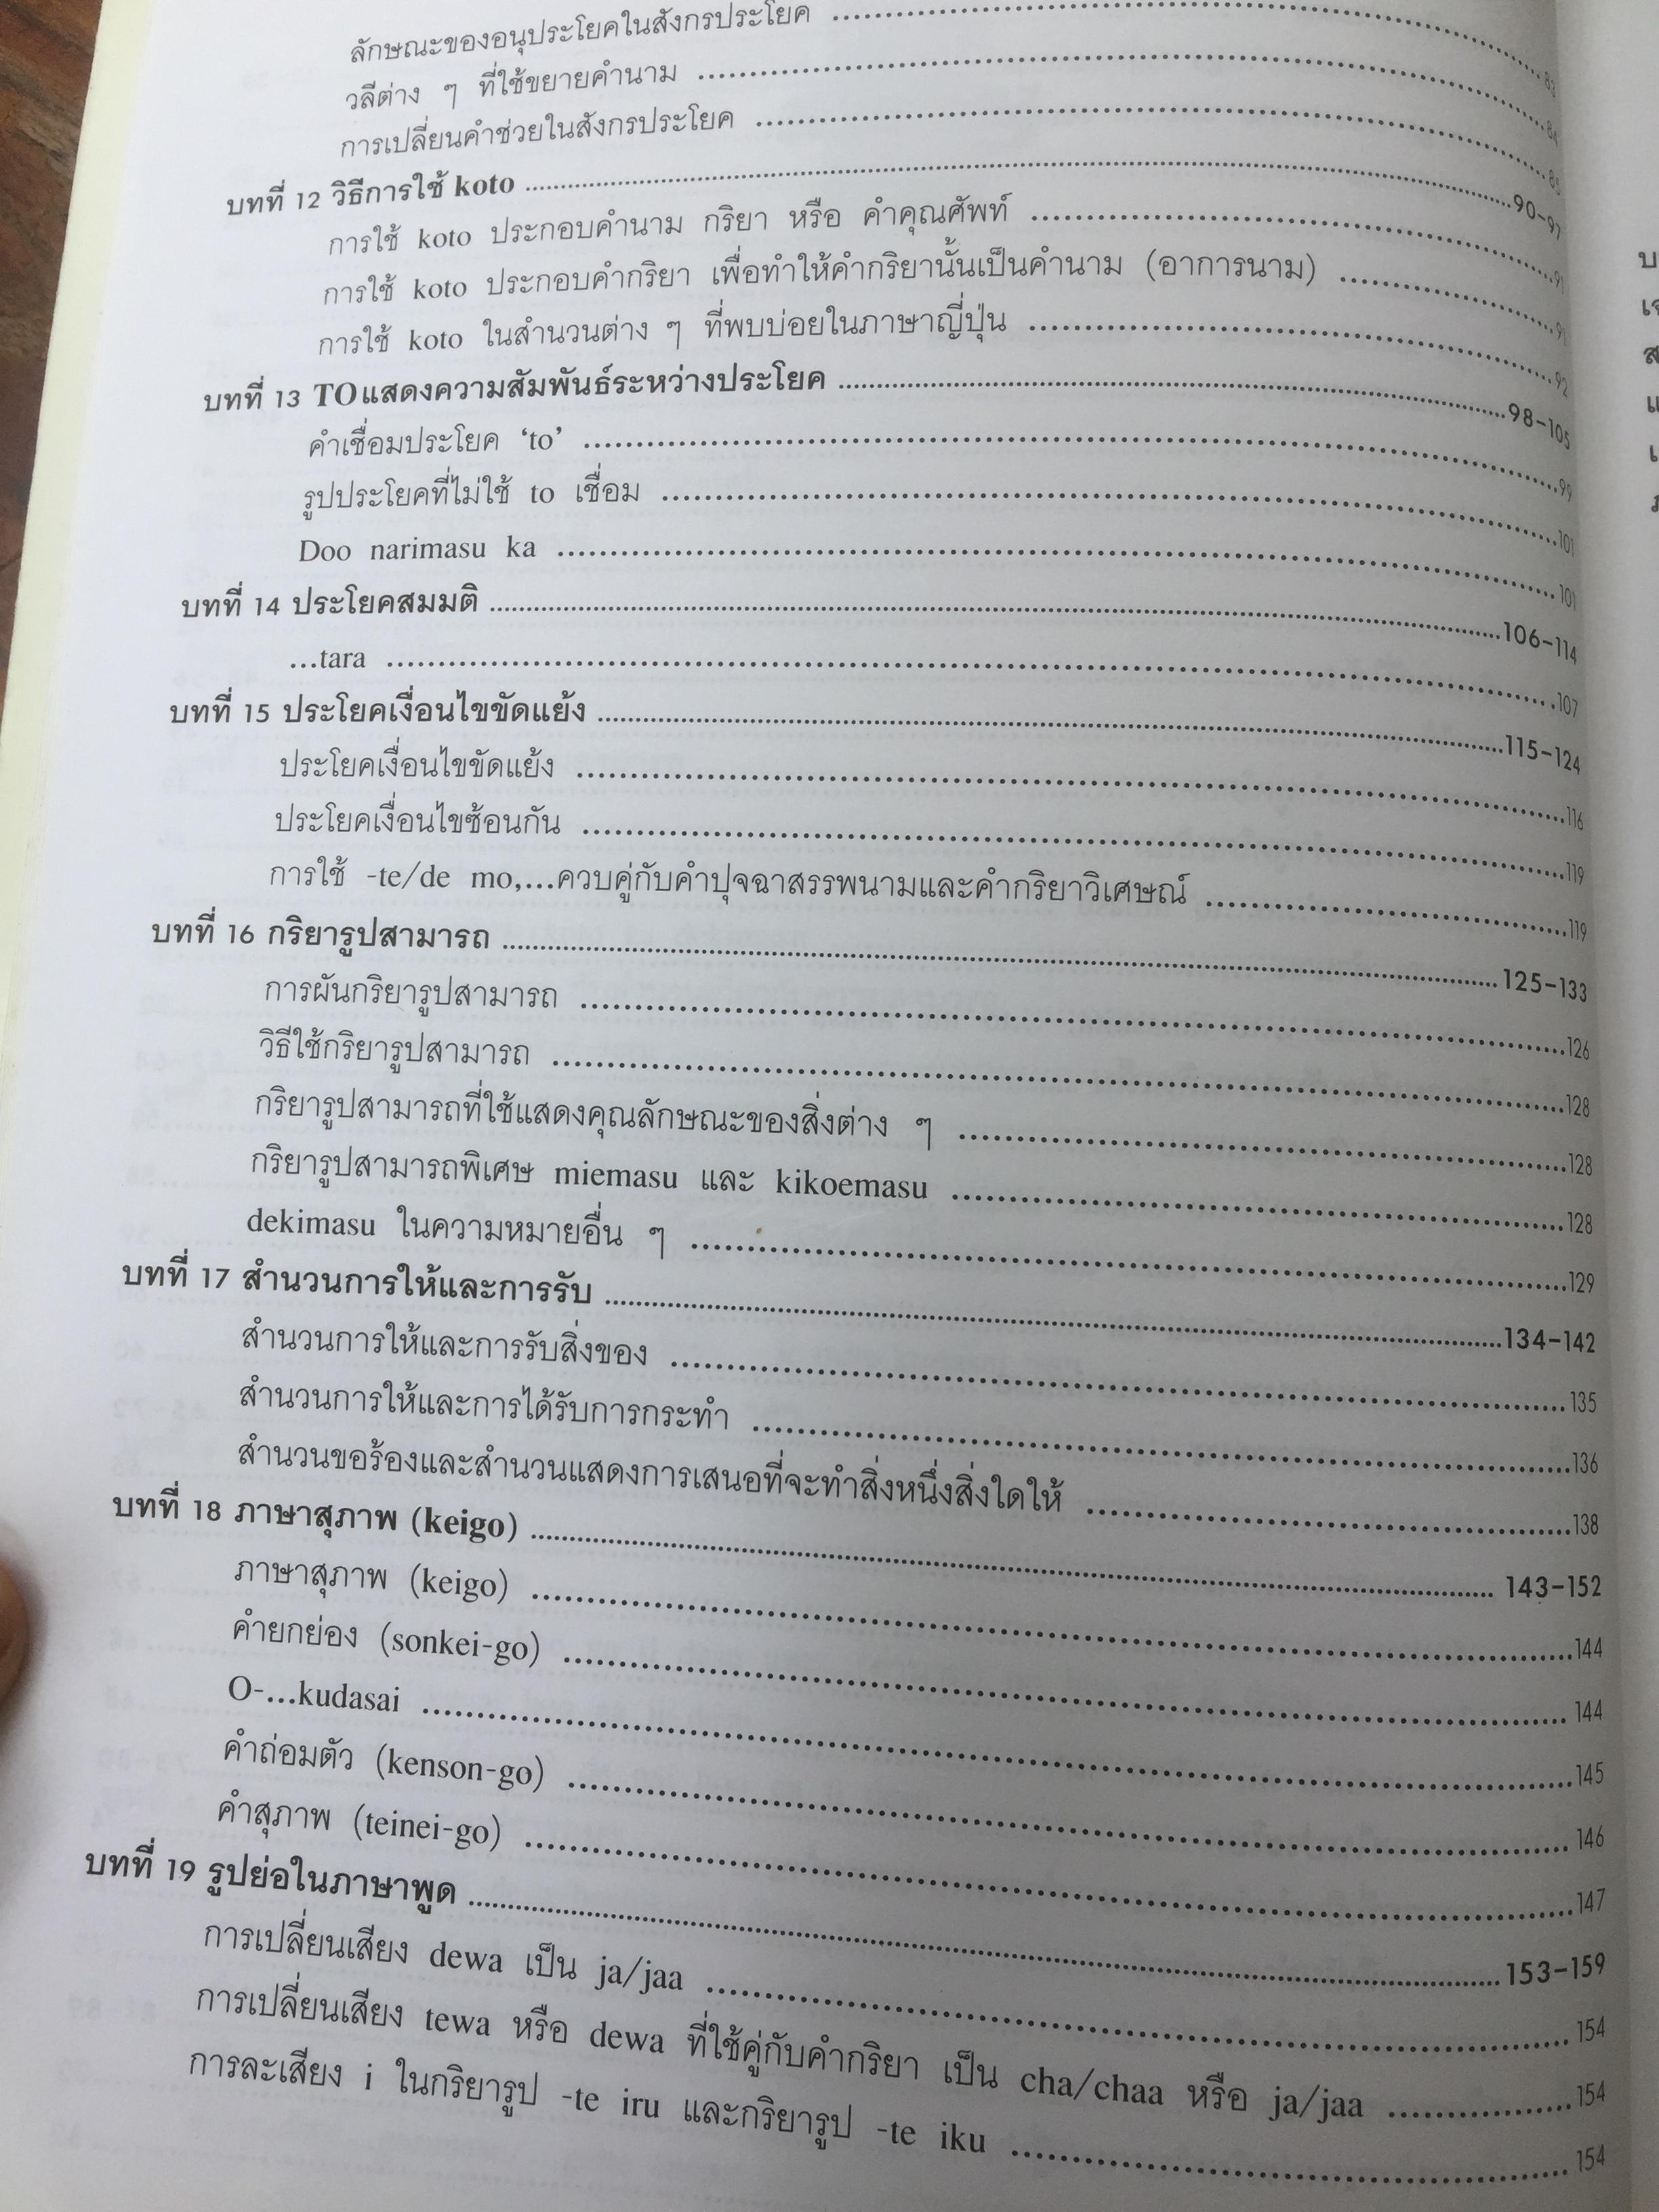 ลักษณะของอนุประโยคในสังกรประโยค ........ 83
วลีต่าง ๆ ที่ใช้ขยายคำนาม ........ 84
การเปลี่ยนคำช่วยในสังกรประโยค ........ 85
บทที่ 12 วิธีการใช้ koto ........ 90-97
การใช้ koto ประกอบคำนาม กริยา หรือ คำคุณศัพท์ ........ 91
การใช้ koto ประกอบคำกริยา เพื่อทำให้คำกริยานั้นเป็นคำนาม (อาการนาม) ........ 91
การใช้ koto ในสำนวนต่าง ๆ ที่พบบ่อยในภาษาญี่ปุ่น ........ 92
บทที่ 13 TOแสดงความสัมพันธ์ระหว่างประโยค ........ 98-105
คำเชื่อมประโยค ‘to’ ........ 99
รูปประโยคที่ไม่ใช้ to เชื่อม ........ 101
Doo narimasu ka ........ 101
บทที่ 14 ประโยคสมมติ ........ 106-114
...tara ........ 107
บทที่ 15 ประโยคเงื่อนไขขัดแย้ง ........ 115-124
ประโยคเงื่อนไขขัดแย้ง ........ 116
ประโยคเงื่อนไขซ้อนกัน ........ 119
การใช้ -te/de mo,...ควบคู่กับคำปุจฉาสรรพนามและคำกริยาวิเศษณ์ ........ 119
บทที่ 16 กริยารูปสามารถ ........ 125-133
การผันกริยารูปสามารถ ........ 126
วิธีใช้กริยารูปสามารถ ........ 128
กริยารูปสามารถที่ใช้แสดงคุณลักษณะของสิ่งต่าง ๆ ........ 128
กริยารูปสามารถพิเศษ miemasu และ kikoemasu ........ 128
dekimasu ในความหมายอื่น ๆ ........ 129
บทที่ 17 สำนวนการให้และการรับ ........ 134-142
สำนวนการให้และการรับสิ่งของ ........ 135
สำนวนการให้และการได้รับการกระทำ ........ 136
สำนวนขอร้องและสำนวนแสดงการเสนอที่จะทำสิ่งหนึ่งสิ่งใดให้ ........ 138
บทที่ 18 ภาษาสุภาพ (keigo) ........ 143-152
ภาษาสุภาพ (keigo) ........ 144
คำยกย่อง (sonkei-go) ........ 144
O-...kudasai ........ 145
คำถ่อมตัว (kenson-go) ........ 146
คำสุภาพ (teinei-go) ........ 147
บทที่ 19 รูปย่อในภาษาพูด ........ 153-159
การเปลี่ยนเสียง dewa เป็น ja/jaa ........ 154
การเปลี่ยนเสียง tewa หรือ dewa ที่ใช้คู่กับคำกริยา เป็น cha/chaa หรือ ja/jaa ........ 154
การละเสียง i ในกริยารูป -te iru และกริยารูป -te iku ........ 154